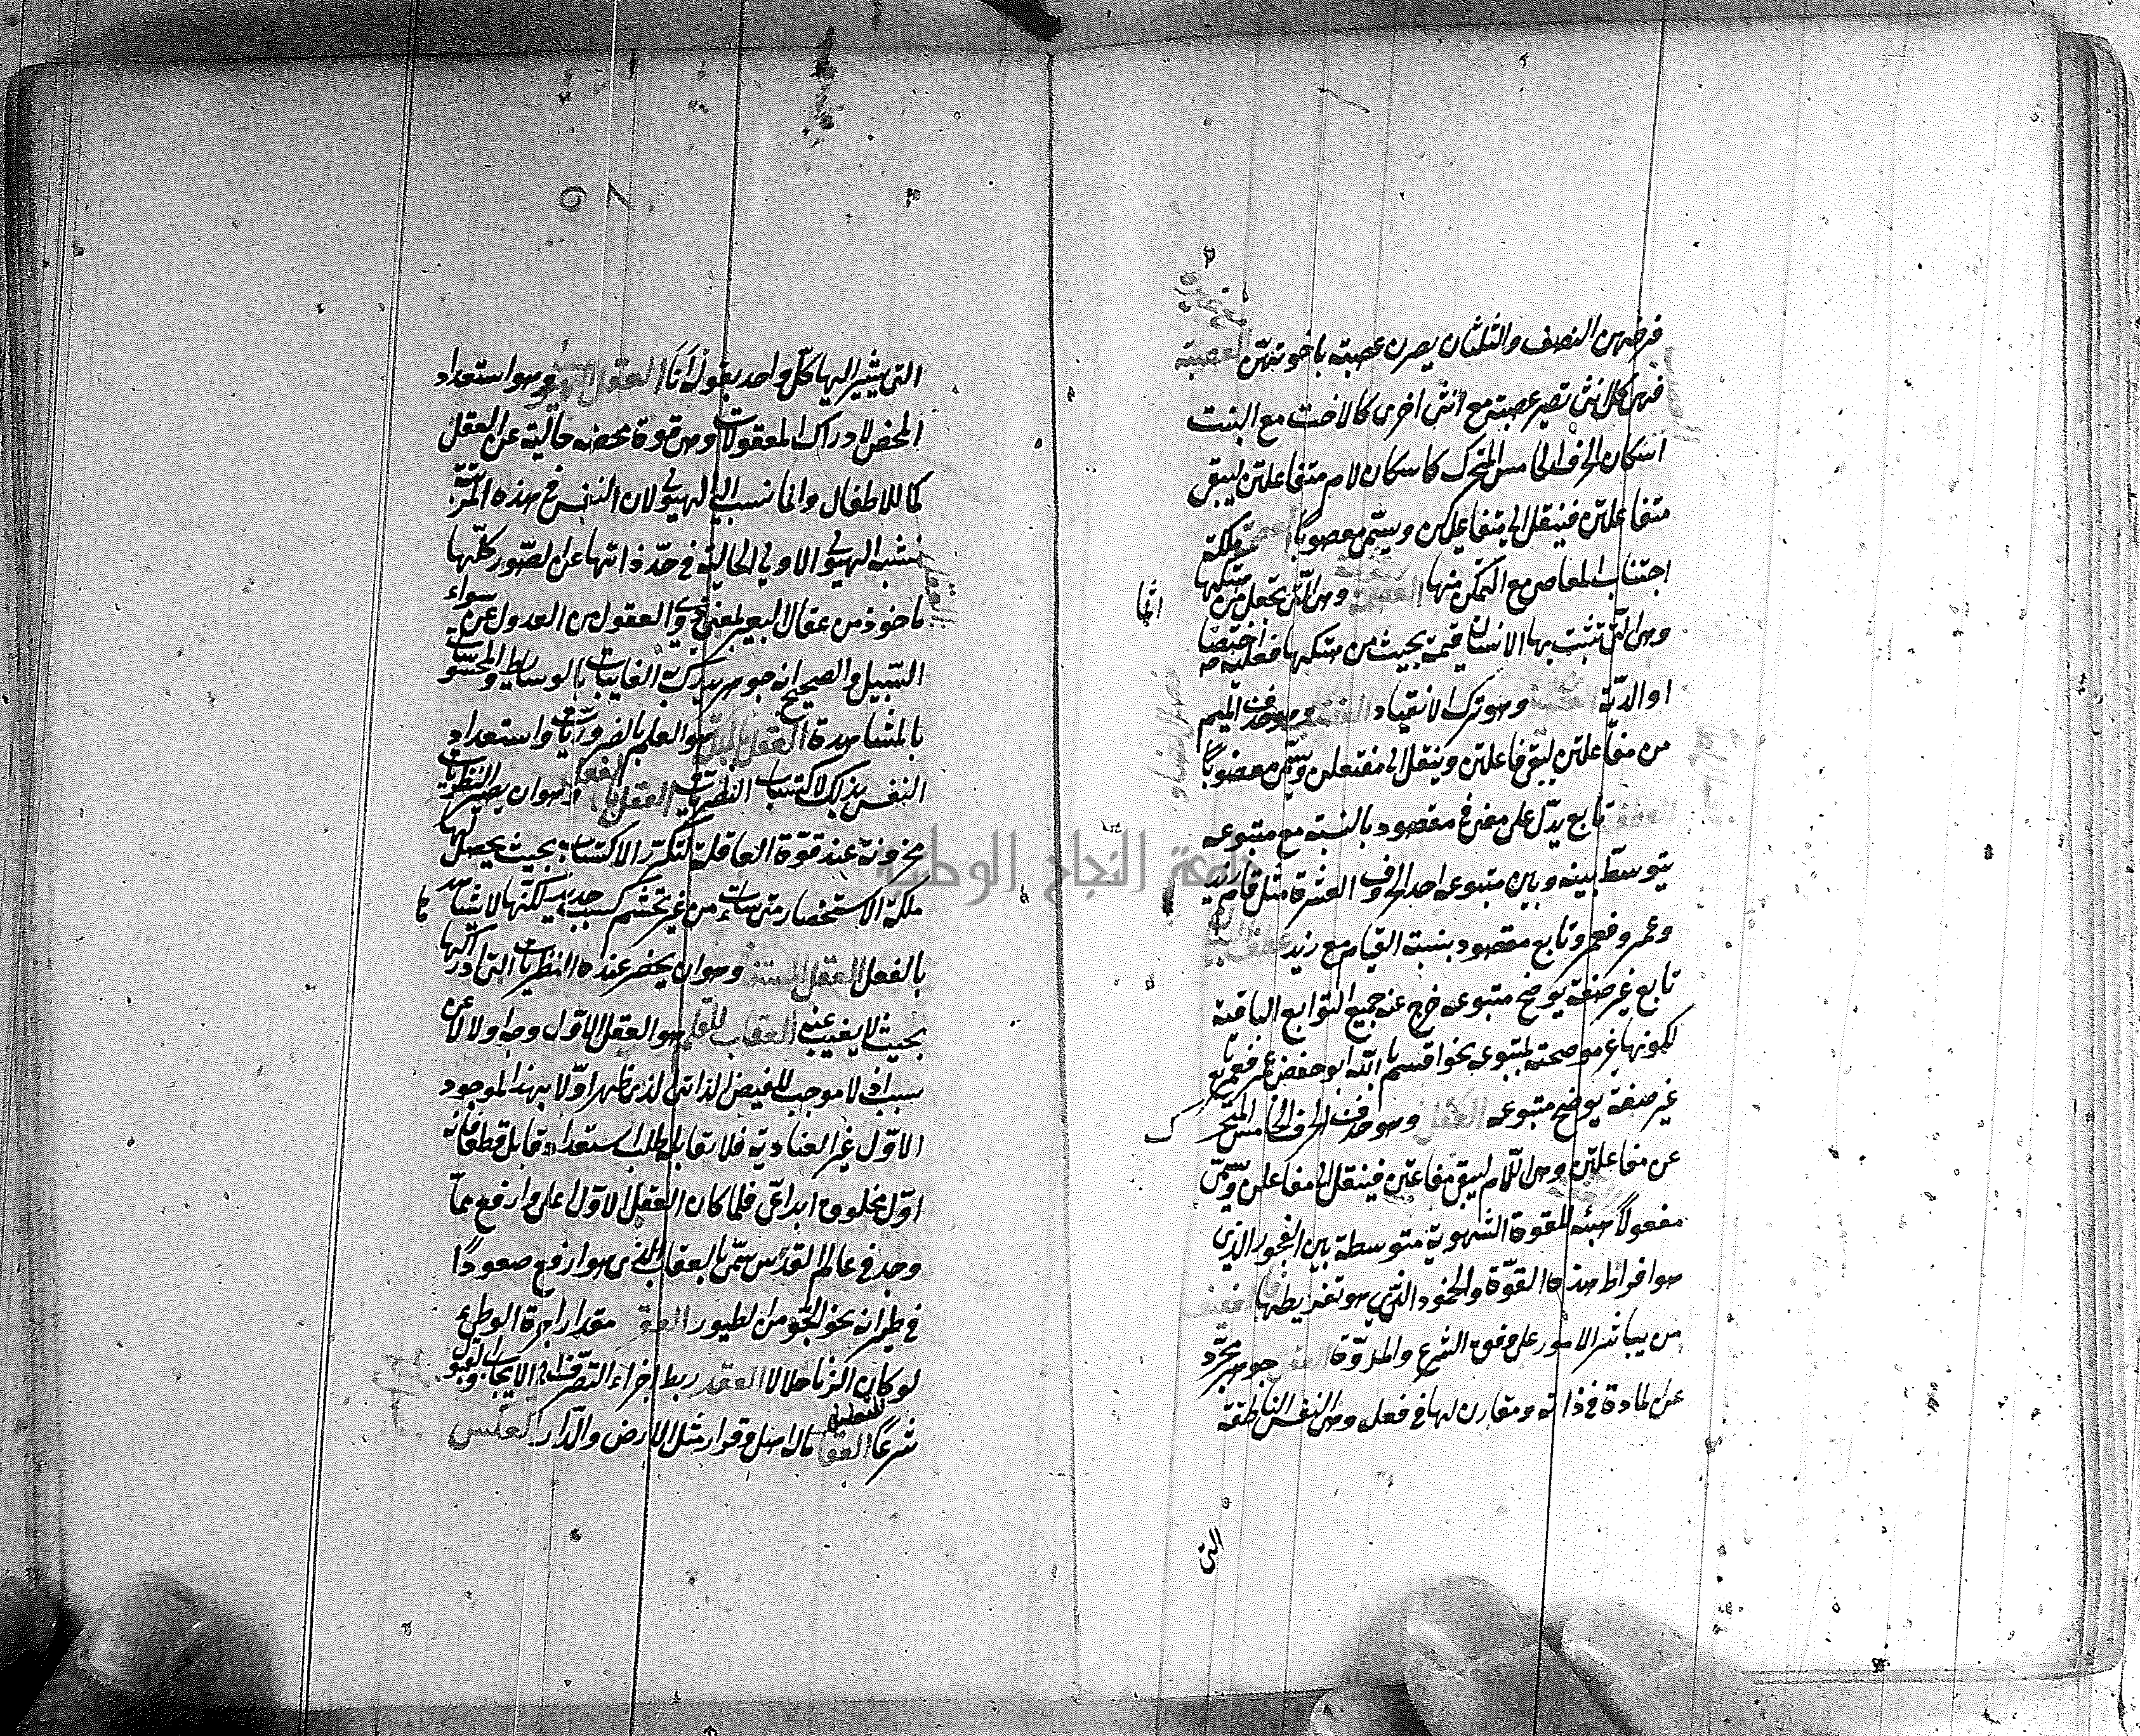 فرضهن النصف والثلثان يصرن عصبة باخوتهن العصبة
فهى كل انثى تصير عصبة مع انثى اخرى كالاخت مع البنت
اسكان الحرف الخامس المتحرك كاسكان لام متفاعلتن ليبقى
متفاعلتن فينقل الى متفاعيلن ويسمى معصوبا ملكة
اجتناب المعاصى مع التمكن منها العصمة وهى التى تجعل من هتكها
اثما
وهى التى تثبت بها الانسان قيمة بحيث من هتكها فعليه قصاص
او الدية وهو ترك الانقياد وهو حذف الميم
من مفاعلتن ليبقى فاعلتن وينقل الى مفتعلن ويسمى معضوبا
تابع يدل على معنى مقصود بالنسبة مع متبوعه
يتوسط بينه وبين متبوعه احد الحروف العشرة مثل قام زيد
وعمرو فعمرو تابع مقصود بنسبة القيام مع زيد عطف البيان
تابع غير صفة يوضح متبوعه خرج عنه جميع التوابع الباقية
لكونها غير موضحة لمتبوعه نحو اقسم بالله ابو حفص عمر فعمر تابع
غير صفة يوضح متبوعه العقل وهو حذف الحرف الخامس المتحرك
من مفاعلتن وهى اللام ليبقى مفاعتن فينقل الى مفاعلن ويسمى
معقولا هيئة للقوة الشهوية متوسطة بين الفجور الذى
هو افراط هذه القوة والخمود الذى هو تفريطها فالعفيف
من يباشر الامور على وفق الشرع والمروة جوهر مجرد
عن المادة فى ذاته ومقارن لها فى فعله وهى النفس الناطقة
التى
التى يشير اليها كل واحد بقوله انا العقل الهيولانى وهو استعداد
المحض لادراك المعقولات وهى قوة محضة خالية عن العقل
كما للاطفال وانما نسب الى الهيولى لان النفس فى هذه المرتبة
تشبه الهيولى الاولى الخالية فى حد ذاتها عن الصور كلها
ماخوذ من عقال البعير لمعنى ذوى العقول من العدول عن سواء
السبيل والصحيح انه جوهر يدرك الغايبات بالوسايط والمحسوسات
بالمشاهدة العقل بالملكة هو العلم بالضروريات واستعداد
النفس بذلك لاكتساب النظريات العقل بالفعل وهو ان يصير النظريات
مخزونة عند قوة العاقلة لتكرر الاكتساب بحيث يحصل لها
ملكة الاستحضار متى شاءت من غير تجشم كسب جديد لكنها لا يشاهد
ها
بالفعل العقل المستفاد وهو ان يحضر عنده النظريات التى ادركها
بحيث لا يغيب عنه العقاب القلم هو العقل الاول وجد اولا لا عن
سبب اذ لا موجب للفيض الذاتى الذى ظهر اولا بهذا الموجود
الاول غير العنادية فلا تقابله طلب استعداد قابل قطعا فانه
اول مخلوق ابداعى فلما كان العقل الاول اعلى وارفع مما
وجد فى عالم القدس سمى بالعقاب الذى هو ارفع صعودا
فى طيرانه نحو الجو من الطيور العقر مقدار اجرة الوطء
لو كان الزنا حلالا العقد ربط اجزاء التصرف اى الايجاب والقبول
شرعا العقار ماله اصل وقرار مثل الارض والدار العكس